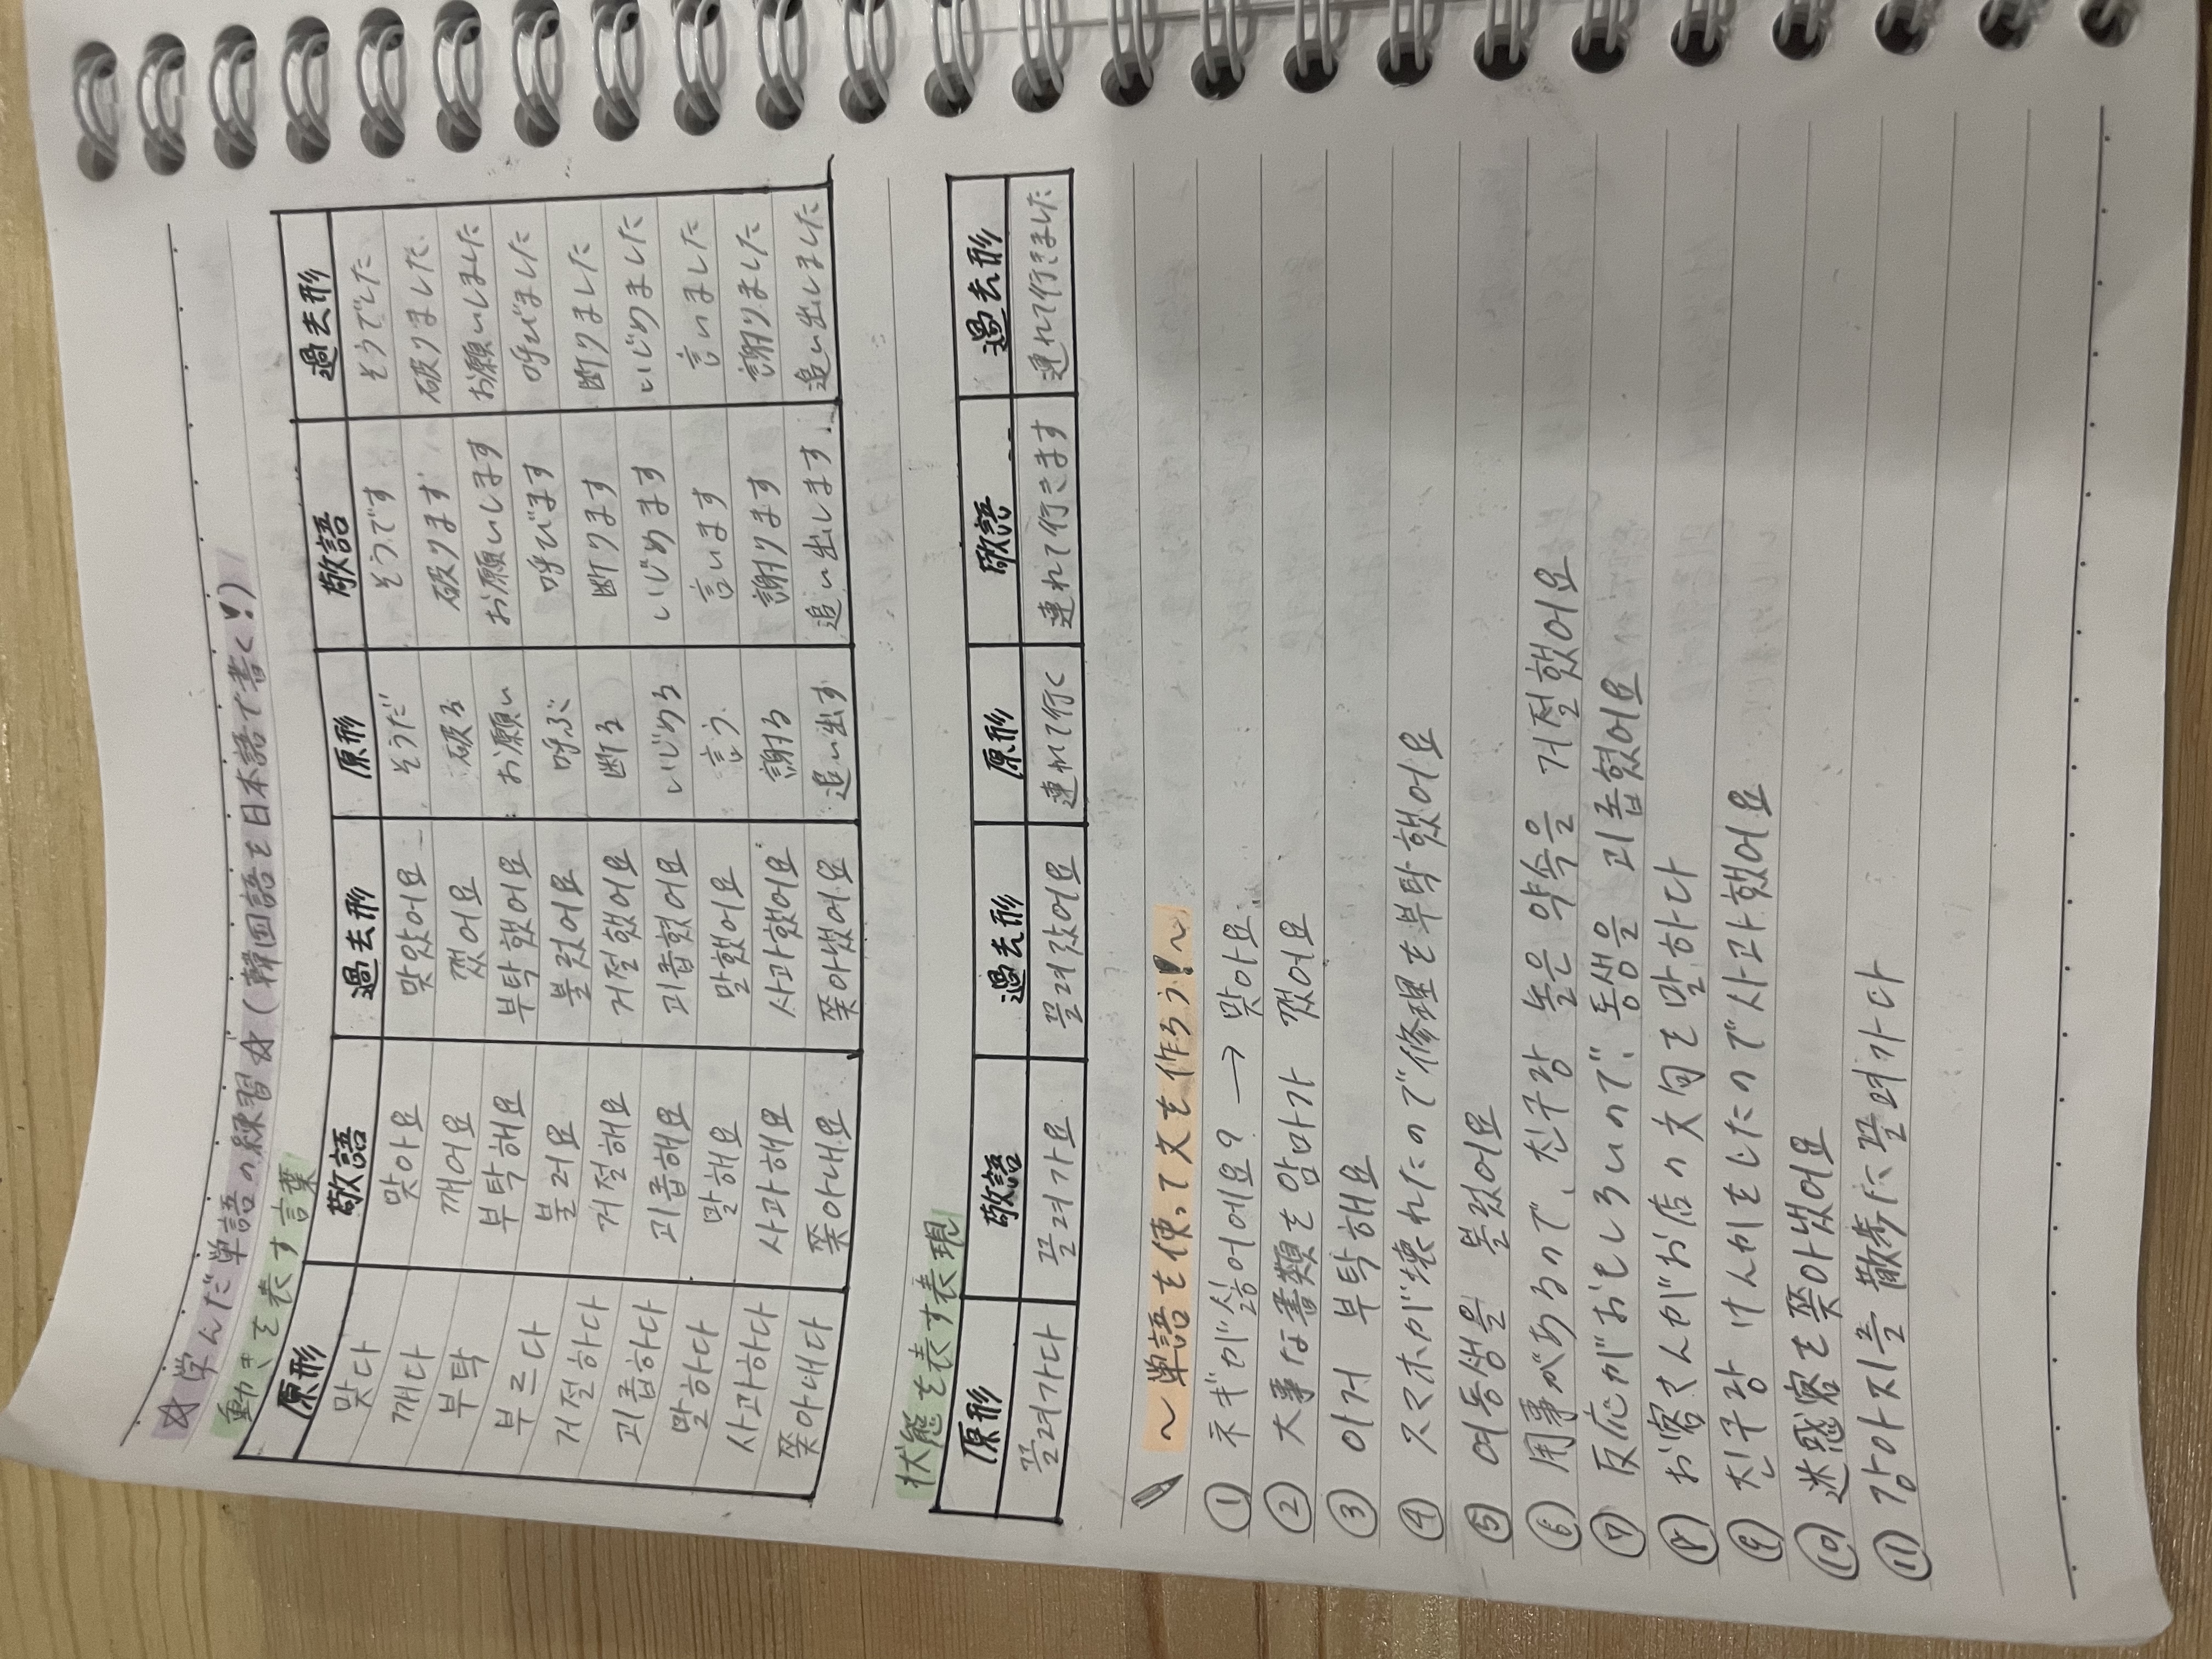 ☆学んだ単語の練習☆(韓国語を日本語で書く!)
動きを表す言葉
原形 敬語 過去形 原形 敬語 過去形
맞다 맞아요 맞았어요 そうだ そうです そうでした
깨다 깨어요 깼어요 破る 破ります 破りました
부탁 부탁해요 부탁했어요 お願い お願いします お願いしました
부르다 불러요 불렀어요 呼ぶ 呼びます 呼びました
거절하다 거절해요 거절했어요 断る 断ります 断りました
괴롭하다 괴롭해요 괴롭혔어요 いじめる いじめます いじめました
말하다 말해요 말했어요 言う 言います 言いました
사과하다 사과해요 사과했어요 謝る 謝ります 謝りました
쫓아내다 쫓아내요 쫓아냈어요 追い出す 追い出します 追い出しました
状態を表す表現
原形 敬語 過去形 原形 敬語 過去形
끌려가다 끌려가요 끌려갔어요 連れて行く 連れて行きます 連れて行きました
~単語を使って文を作ろう!~
① ネギが싫어에요? → 맞아요
② 大事な書類を암마가 깼어요
③ 아거 부탁해요
④ スマホが壊れたので修理を부탁했어요
⑤ 여동생을 불렀어요
⑥ 用事があるので、친구랑 놀은 약속을 거절했어요
⑦ 反応がおもしろいので、동생을 괴롭혔어요
⑧ お客さんがお店の文句を말하다
⑨ 친구랑 けんかをしたので사과했어요
⑩ 迷惑客を쫓아냈어요
⑪ 강아지를 散歩に끌려가다